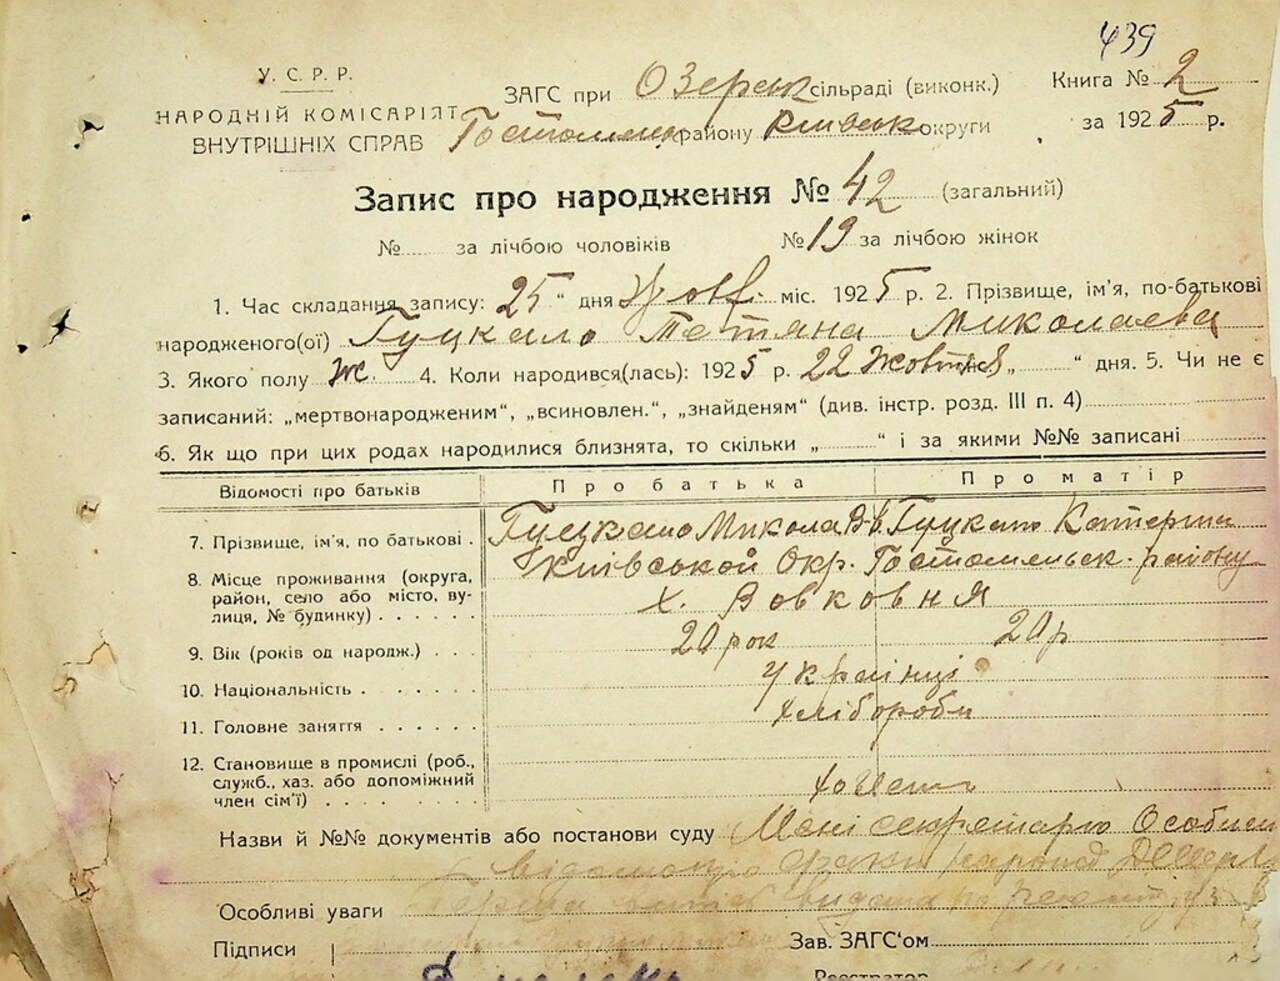 439
У. С. Р. Р.
НАРОДНІЙ КОМІСАРІЯТ
ВНУТРІШНІХ СПРАВ
ЗАГС при Озерськ сільраді (виконк.)
Гостомльськ району Київськ округи
Книга № 2
за 1925 р.
Запис про народження № 42 (загальний)
№ за лічбою чоловіків № 19 за лічбою жінок
1. Час складання запису: 25 “ дня міс. 1925 р. 2. Прізвище, ім'я, по-батькові
народженого(ої) Гуцкало Тетяна Миколаєва
3. Якого полу Ж. 4. Коли народився(лась): 1925 р. 22 Жовтня „ “ дня. 5. Чи не є
записаний: „мертвонародженим“, „всиновлен.“, „знайденям“ (див. інстр. розд. III п. 4)
6. Як що при цих родах народилися близнята, то скільки „ “ і за якими №№ записані
Відомості про батьків Про батька Про матір
7. Прізвище, ім'я, по батькові . Гуцкало Микола Гуцкало Катерина
8. Місце проживання (округа, Київської Окр. Гостомельськ. району
район, село або місто, ву-
лиця, № будинку) . . . . . . х. Вовковня
9. Вік (років од народж.) . . . 20 рок 20 р
10. Національність . . . . . . Українці
11. Головне заняття . . . . . . хлібороби
12. Становище в промислі (роб.,
служб., хаз. або допоміжний
член сім'ї) . . . . . . . .
Назви й №№ документів або постанови суду Мені секретарю Особисто
Особливі уваги
Підписи
Зав. ЗАГС'ом
Реєстратор